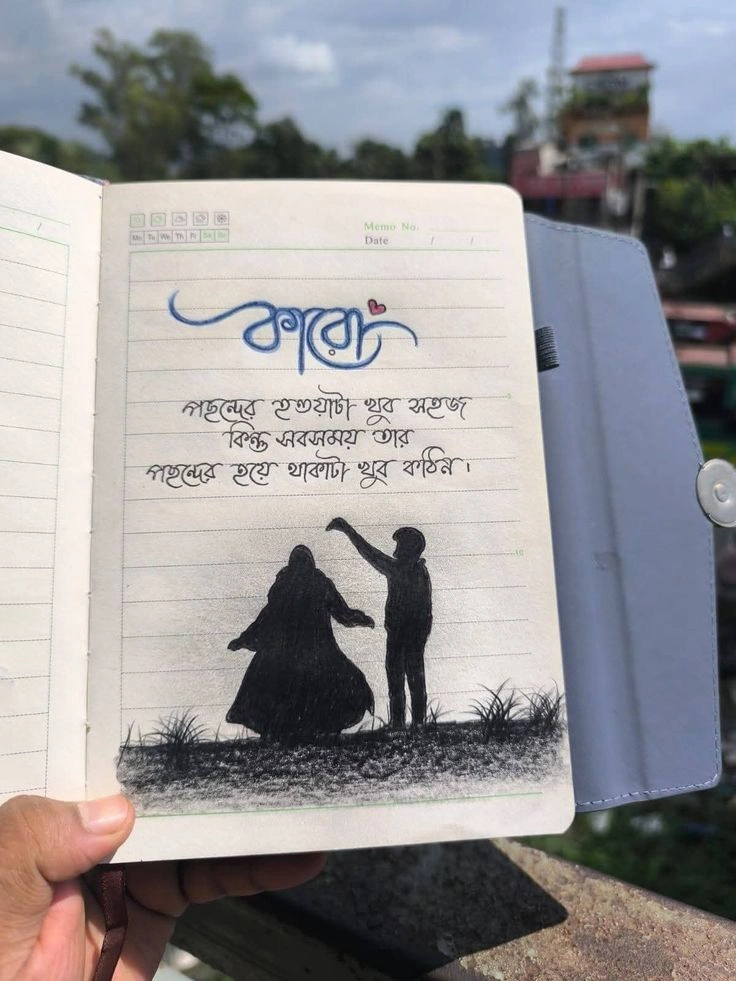 Mo Tu We Th Fr Sa Su
Memo No.
Date / /
কারো
পছন্দের হওয়াটা খুব সহজ
কিন্তু সবসময় তার
পছন্দের হয়ে থাকাটা খুব কঠিন।